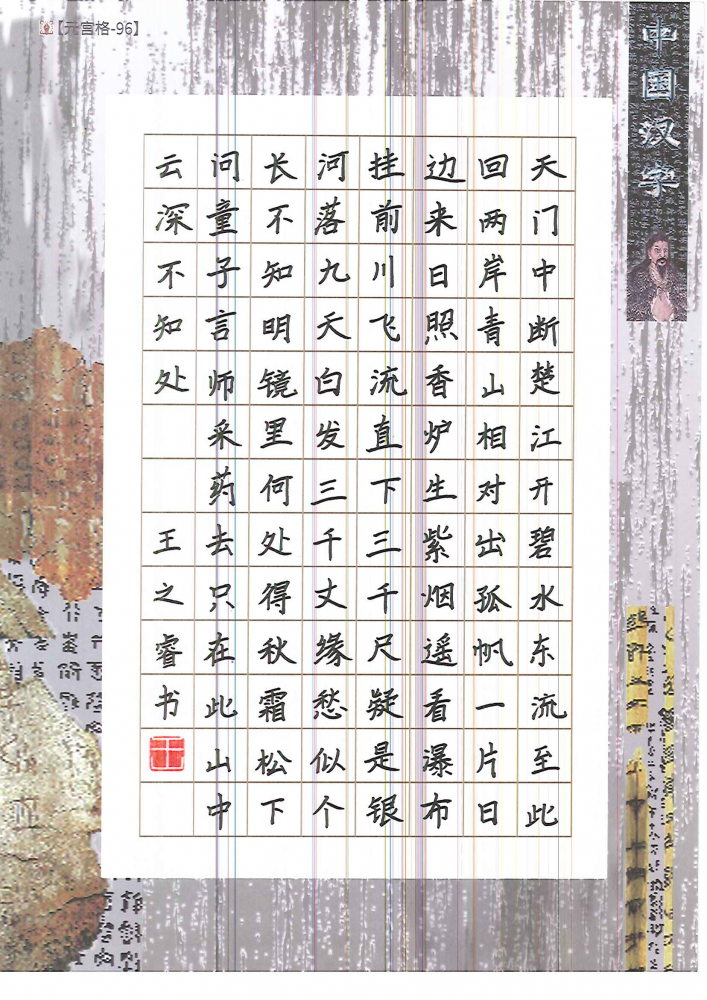 【元宫格-96】
中國汉字
天门中断楚江开碧水东流至此
回两岸青山相对出孤帆一片日
边来日照香炉生紫烟遥看瀑布
挂前川飞流直下三千尺疑是银
河落九天白发三千丈缘愁似个
长不知明镜里何处得秋霜松下
问童子言师采药去只在此山中
云深不知处
王之睿书